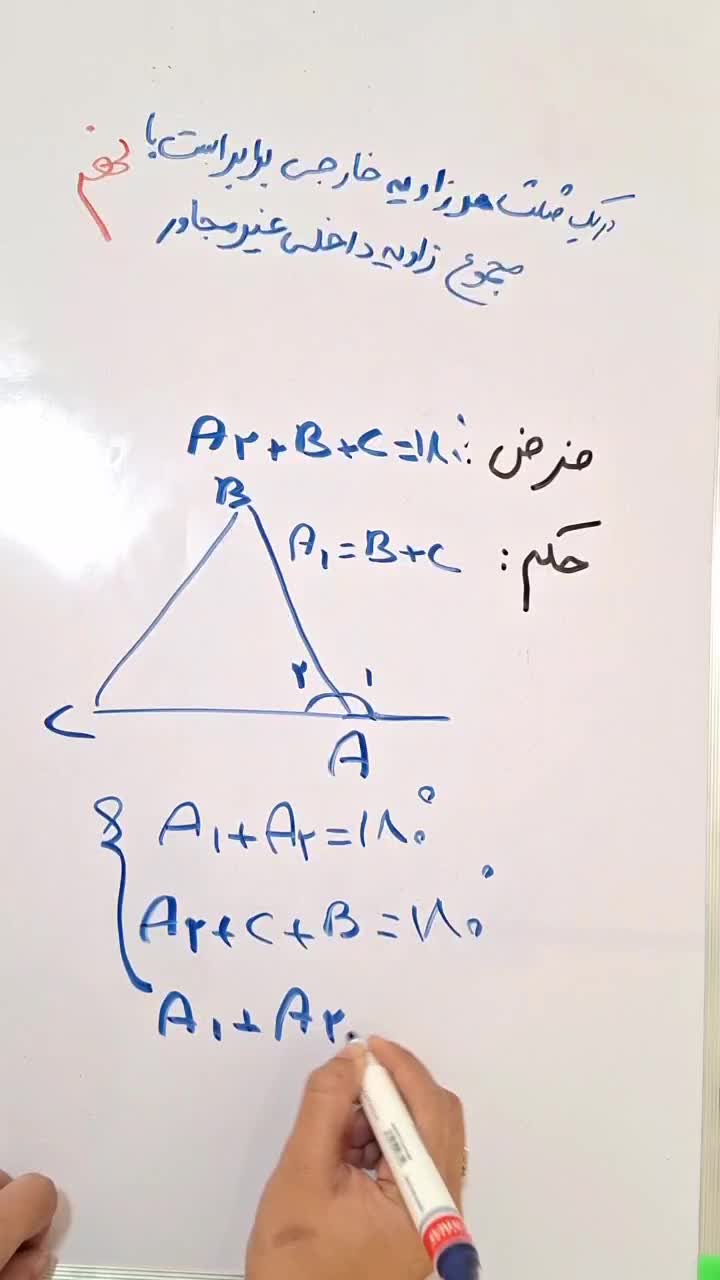 در یک مثلث هر زاویه خارجی برابر است با
مجموع زاویه داخلی غیر مجاور
نهم
فرض: A۲+B+C=۱۸۰°
حکم: A۱=B+C
B
۲ ۱
C
A
A۱+A۲=۱۸۰°
A۲+C+B=۱۸۰°
A۱+A۲